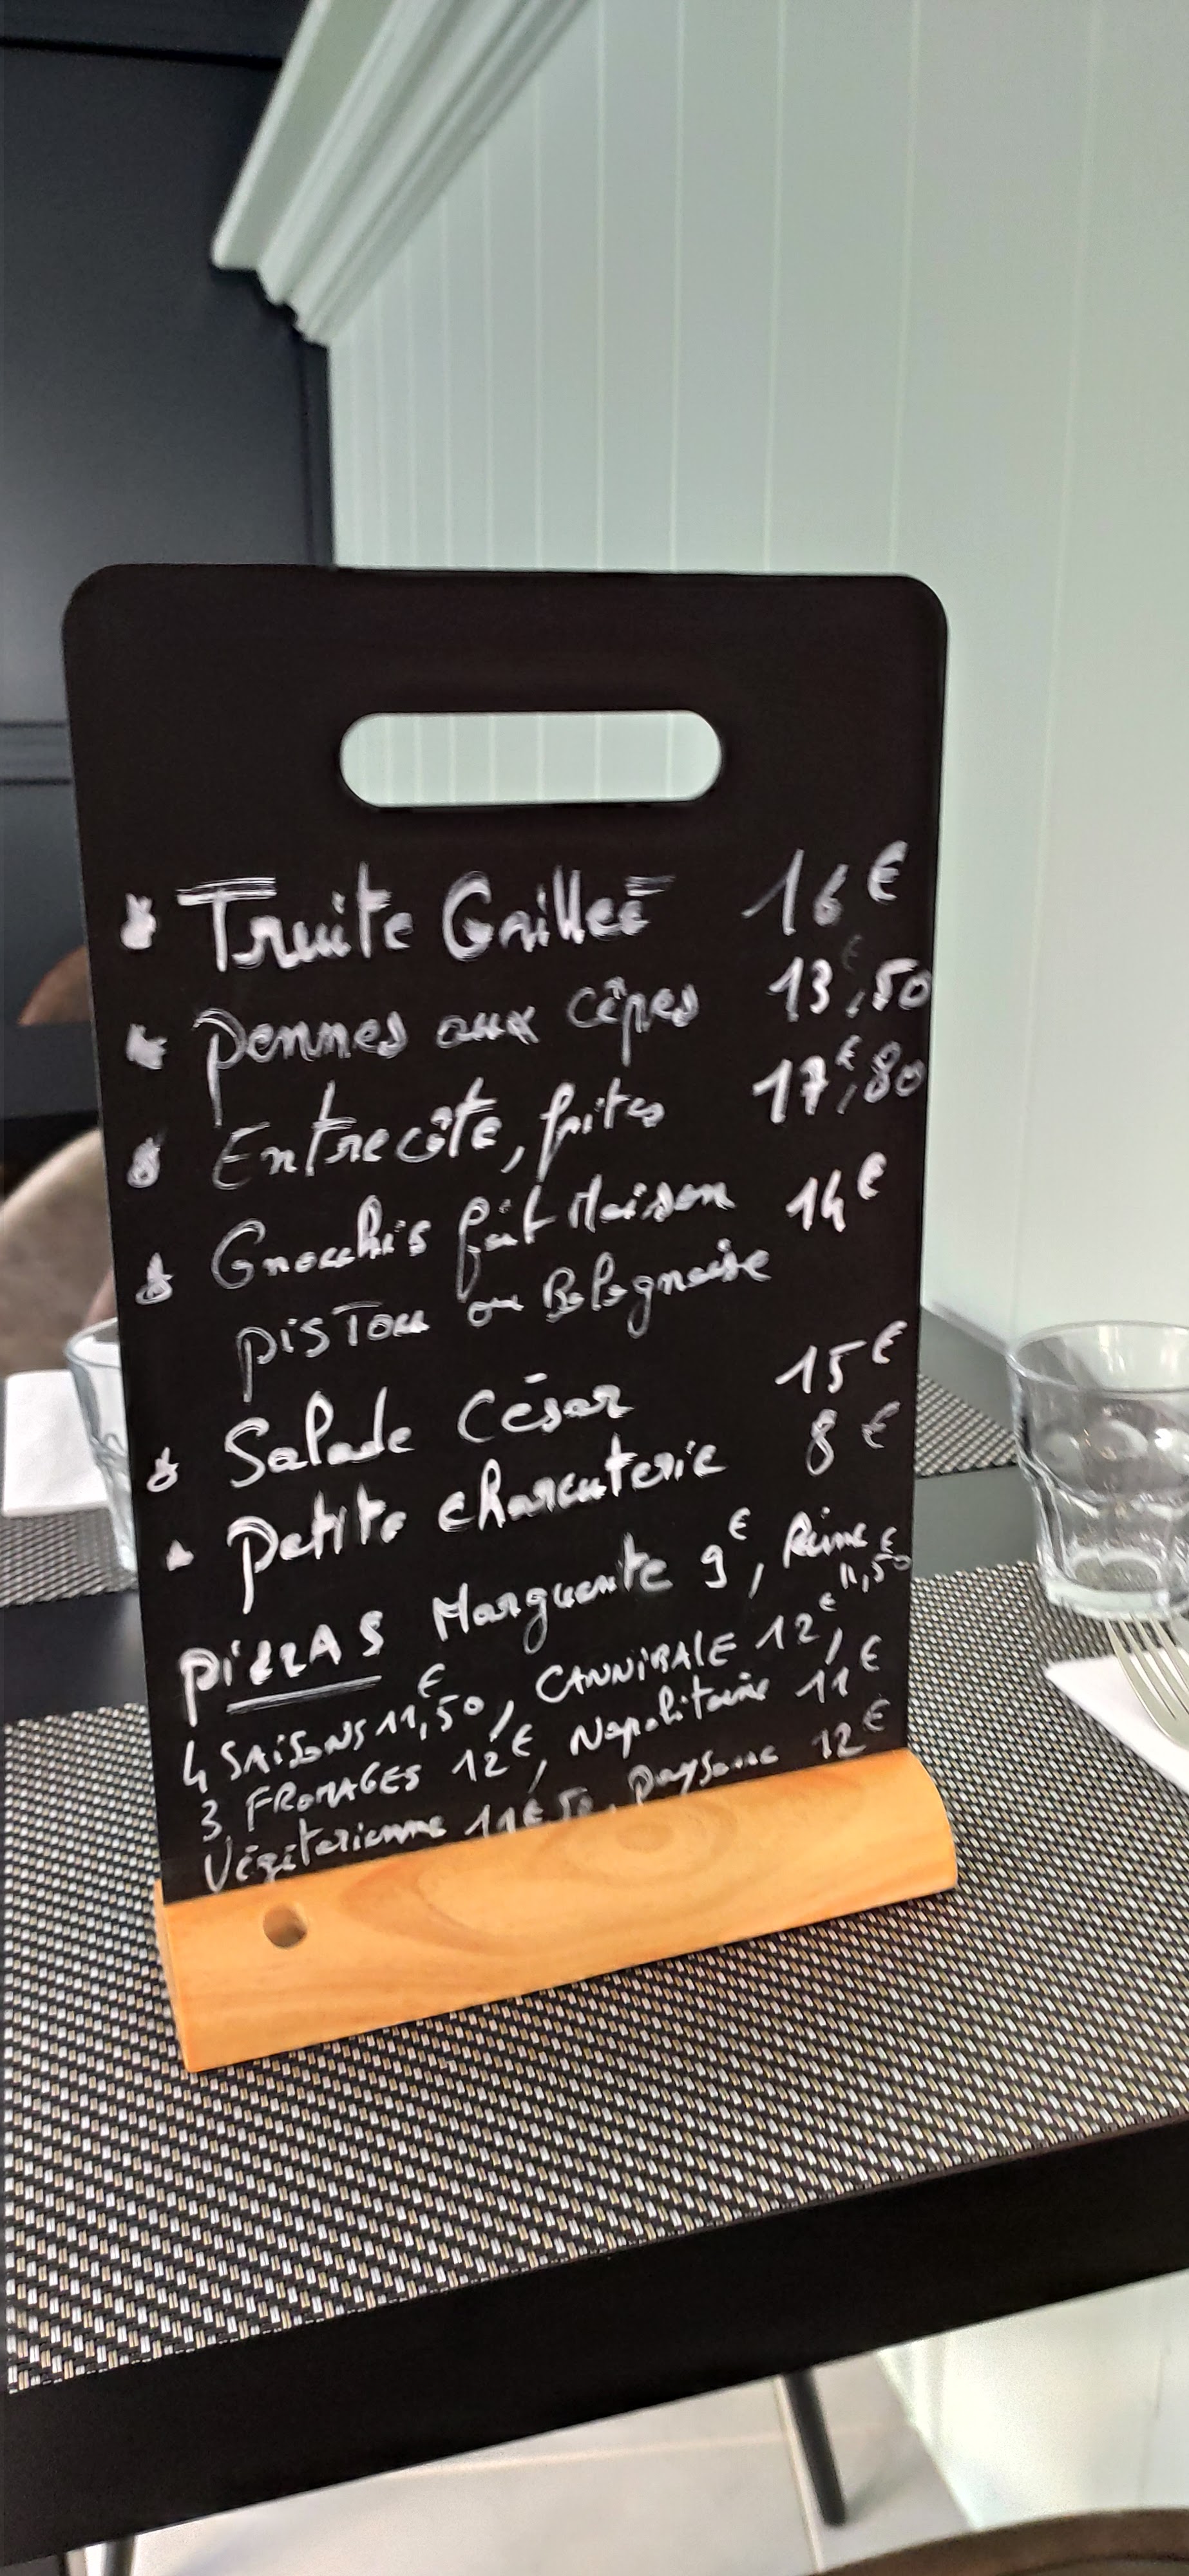 Truite Grillée 16€
pennes aux cêpes 13€,50
Entrecôte, frites 17€,80
Gnocchis fait Maison 14€
pisTou ou Bolognaise
Salade César 15€
Petite charcuterie 8€
PizzAS Marguerite 9€, Reine 11,50€
4 SAiSoNS 11,50€, CANNiBALE 12€,
3 FROMAGES 12€, Napolitaine 11€
Végétarienne 11€50, paysanne 12€